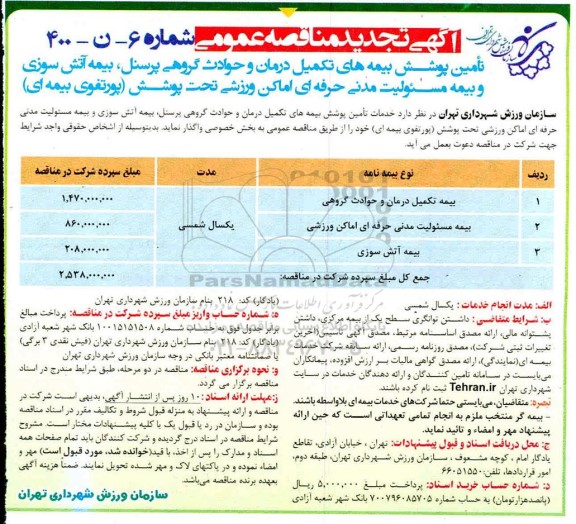 آگهی تجدید مناقصه عمومی شماره ۶- ن - ۴۰۰
تأمین پوشش بیمه های تکمیل درمان و حوادث گروهی پرسنل، بیمه آتش سوزی
و بیمه مسئولیت مدنی حرفه ای اماکن ورزشی تحت پوشش (پورتفوی بیمه ای)
سازمان ورزش شهرداری تهران در نظر دارد خدمات تأمین پوشش بیمه های تکمیل درمان و حوادث گروهی پرسنل، بیمه آتش سوزی و بیمه مسئولیت مدنی
حرفه ای اماکن ورزشی تحت پوشش (پورتفوی بیمه ای) خود را از طریق مناقصه عمومی به بخش خصوصی واگذار نماید. بدینوسیله از اشخاص حقوقی واجد شرایط
جهت شرکت در مناقصه دعوت بعمل می آید.
ردیف نوع بیمه نامه مدت مبلغ سپرده شرکت در مناقصه
۱ بیمه تکمیل درمان و حوادث گروهی ۱،۴۷۰،۰۰۰،۰۰۰
۲ بیمه مسئولیت مدنی حرفه ای اماکن ورزشی یکسال شمسی ۸۶۰،۰۰۰،۰۰۰
۳ بیمه آتش سوزی ۲۰۸،۰۰۰،۰۰۰
جمع کل مبلغ سپرده شرکت در مناقصه: ۲،۵۳۸،۰۰۰،۰۰۰
الف: مدت انجام خدمات: یکسال شمسی
ب: شرایط متقاضی: داشتن توانگری سطح یک از بیمه مرکزی، داشتن
پشتوانه مالی، ارائه مصدق اساسنامه مرتبط، مصدق آگهی تأسیس (آخرین
تغییرات ثبتی شرکت)، مصدق روزنامه رسمی، ارائه سابقه شرکت خدمات
بیمه ای (نمایندگی)، ارائه مصدق گواهی مالیات بر ارزش افزوده. پیمانکاران
می‌بایست در سامانه تامین کنندگان و ارائه دهندگان خدمات در سایت
شهرداری تهران Tehran.ir ثبت نام کرده باشند.
تبصره: متقاضیان، می‌بایستی حتما شرکت های خدمات بیمه ای بلاواسطه باشند.
- بیمه گر منتخب ملزم به انجام تمامی تعهداتی است که حین ارائه
پیشنهاد مهر و امضاء و تائید نماید.
ج: محل دریافت اسناد و قبول پیشنهادات: تهران، خیابان آزادی، تقاطع
یادگار امام، کوچه مشعوف، سازمان ورزش شهرداری تهران، طبقه دوم،
امور قراردادها، تلفن: ۶۶۰۵۱۵۵۰
د: شماره حساب خرید اسناد: پرداخت مبلغ ۵,۰۰۰,۰۰۰ ریال
(پانصدهزارتومان) به حساب شماره ۷۰۰۷۹۶۰۸۵۷۰۵ بانک شهر شعبه آزادی
(یادگار) کد: ۲۱۸ بنام سازمان ورزش شهرداری تهران
ه: شماره حساب واریز مبلغ سپرده شرکت در مناقصه: پرداخت
برابر جدول فوق به حساب شماره ۱۰۰۱۵۱۵۱۵۰۸ بانک شهر شعبه آزادی
(یادگار) کد: ۲۱۸ بنام سازمان ورزش شهرداری تهران (فیش نقدی ۳ برگی)
یا ضمانتنامه معتبر بانکی در وجه سازمان ورزش شهرداری تهران
و: نحوه برگزاری مناقصه: مناقصه در دو مرحله، طبق شرایط مندرج در اسناد
مناقصه برگزار می گردد.
ز: مهلت ارائه اسناد: ۱۰ روز پس از انتشار آگهی، بدیهی است شرکت در
مناقصه و ارائه پیشنهاد به منزله قبول شروط و تکالیف مقرر در اسناد مناقصه
بوده و سازمان در رد یا قبول یک یا کلیه پیشنهادات مختار است. مشروح
شرایط مناقصه در اسناد درج گردیده و شرکت کنندگان باید تمام صفحات همه
اسناد و مدارک را پس از اخذ، با قید (خوانده شد، مورد قبول است) مهر و
امضاء نموده و در پاکتهای لاک و مهر شده تحویل نمایند. ضمناً هزینه آگهی
بعهده برنده مناقصه می‌باشد.
سازمان ورزش شهرداری تهران